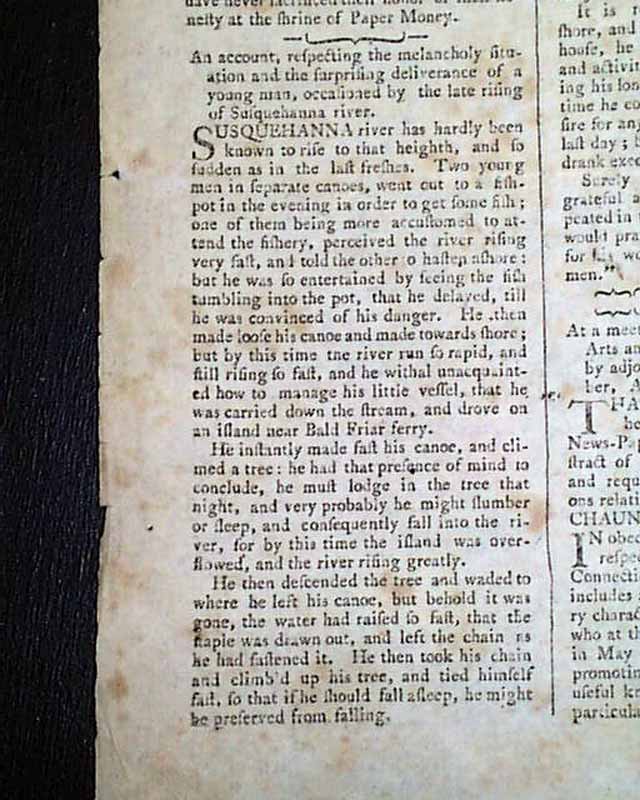 have never sacrificed their honor or
nesty at the shrine of Paper Money.
An account, reſpecting the melancholy ſitu-
ation and the ſurpriſing deliverance of a
young man, occaſioned by the late riſing
of Suſquehanna river.
SUSQUEHANNA river has hardly been
known to riſe to that heighth, and ſo
ſudden as in the laſt freſhes. Two young
men in ſeparate canoes, went out to a fiſh-
pot in the evening in order to get ſome fiſh;
one of them being more accuſtomed to at-
tend the fiſhery, perceived the river riſing
very faſt, and told the other to haſten aſhore:
but he was ſo entertained by ſeeing the fiſh
tumbling into the pot, that he delayed, till
he was convinced of his danger. He then
made looſe his canoe and made towards ſhore;
but by this time the river run ſo rapid, and
ſtill riſing ſo faſt, and he withal unacquaint-
ed how to manage his little veſſel, that he
was carried down the ſtream, and drove on
an iſland near Bald Friar ferry.
He inſtantly made faſt his canoe, and cli-
med a tree: he had that preſence of mind to
conclude, he muſt lodge in the tree that
night, and very probably he might ſlumber
or ſleep, and conſequently fall into the ri-
ver, for by this time the iſland was over-
flowed, and the river riſing greatly.
He then deſcended the tree and waded to
where he left his canoe, but behold it was
gone, the water had raiſed ſo faſt, that the
ſtaple was drawn out, and left the chain as
he had faſtened it. He then took his chain
and climb'd up his tree, and tied himſelf
faſt, ſo that if he ſhould fall aſleep, he might
be preſerved from falling.
It is
ſhore, and
houſe, he
and activit
ing his lon
time he co
fire for any
laſt day; b
drank exce
Surely
grateful a
peated in
would pra
for his wo
men."
At a meet
Arts an
by adjo
ber, A
THA
be
News-Pap
ſtract of
and requ
ons relati
CHAUN
IN obed
reſpec
Connecti
includes
ry charac
who at th
in May
promotin
uſeful k
particula